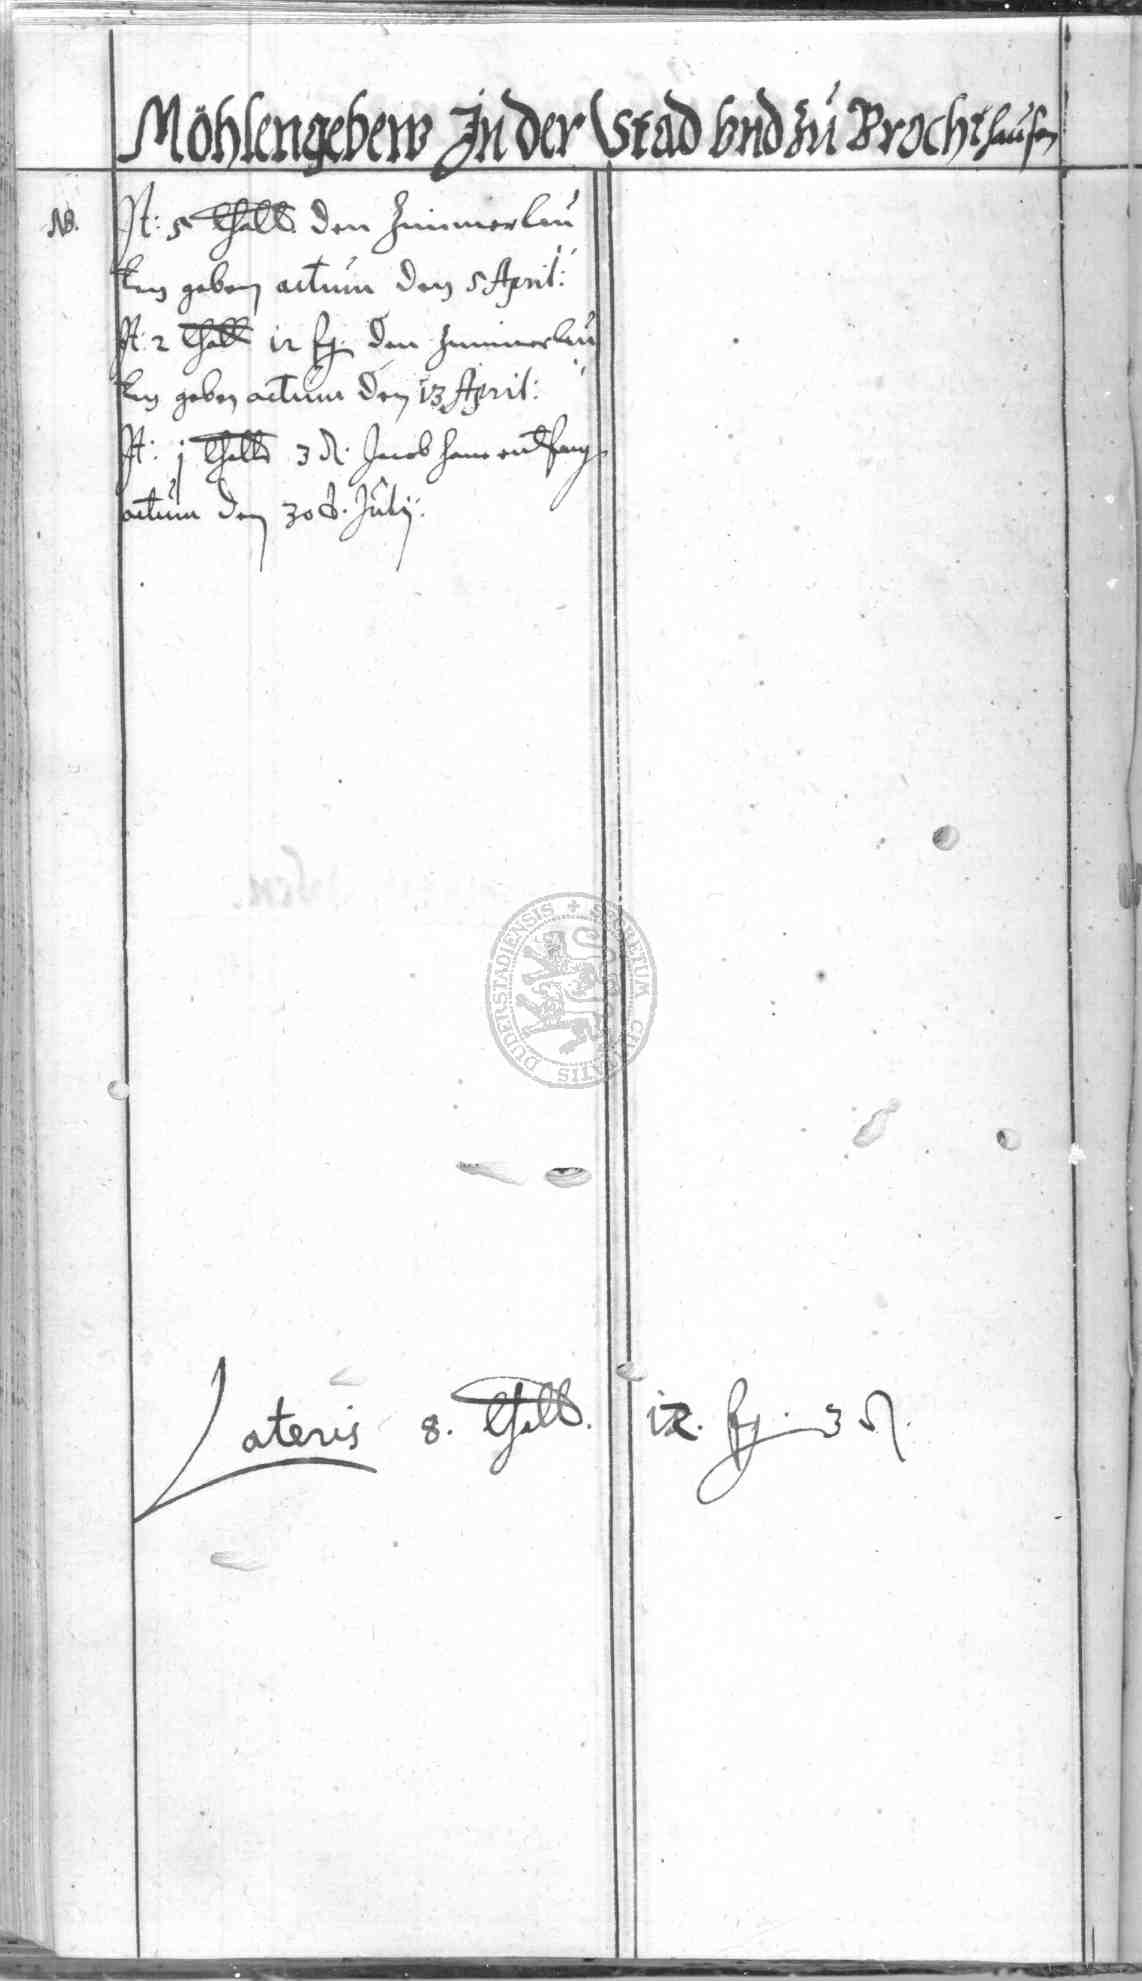 Möhlengebew In der Stad vnd zu Brochthausen
NB.
It: 5 thall. den Zimmerleu
ten geben actum den 5 April:
It: 2 thall 12 fg. den Zimmerleu
ten geben actum den 13 April:
It: j thall 3 ₰. Jacob hane entfang
actum den 30 Julij:
DUDERSTADIENSIS + SECRETUM CIVITATIS
Lateris 8. thall. 12. fg. 3 ₰.